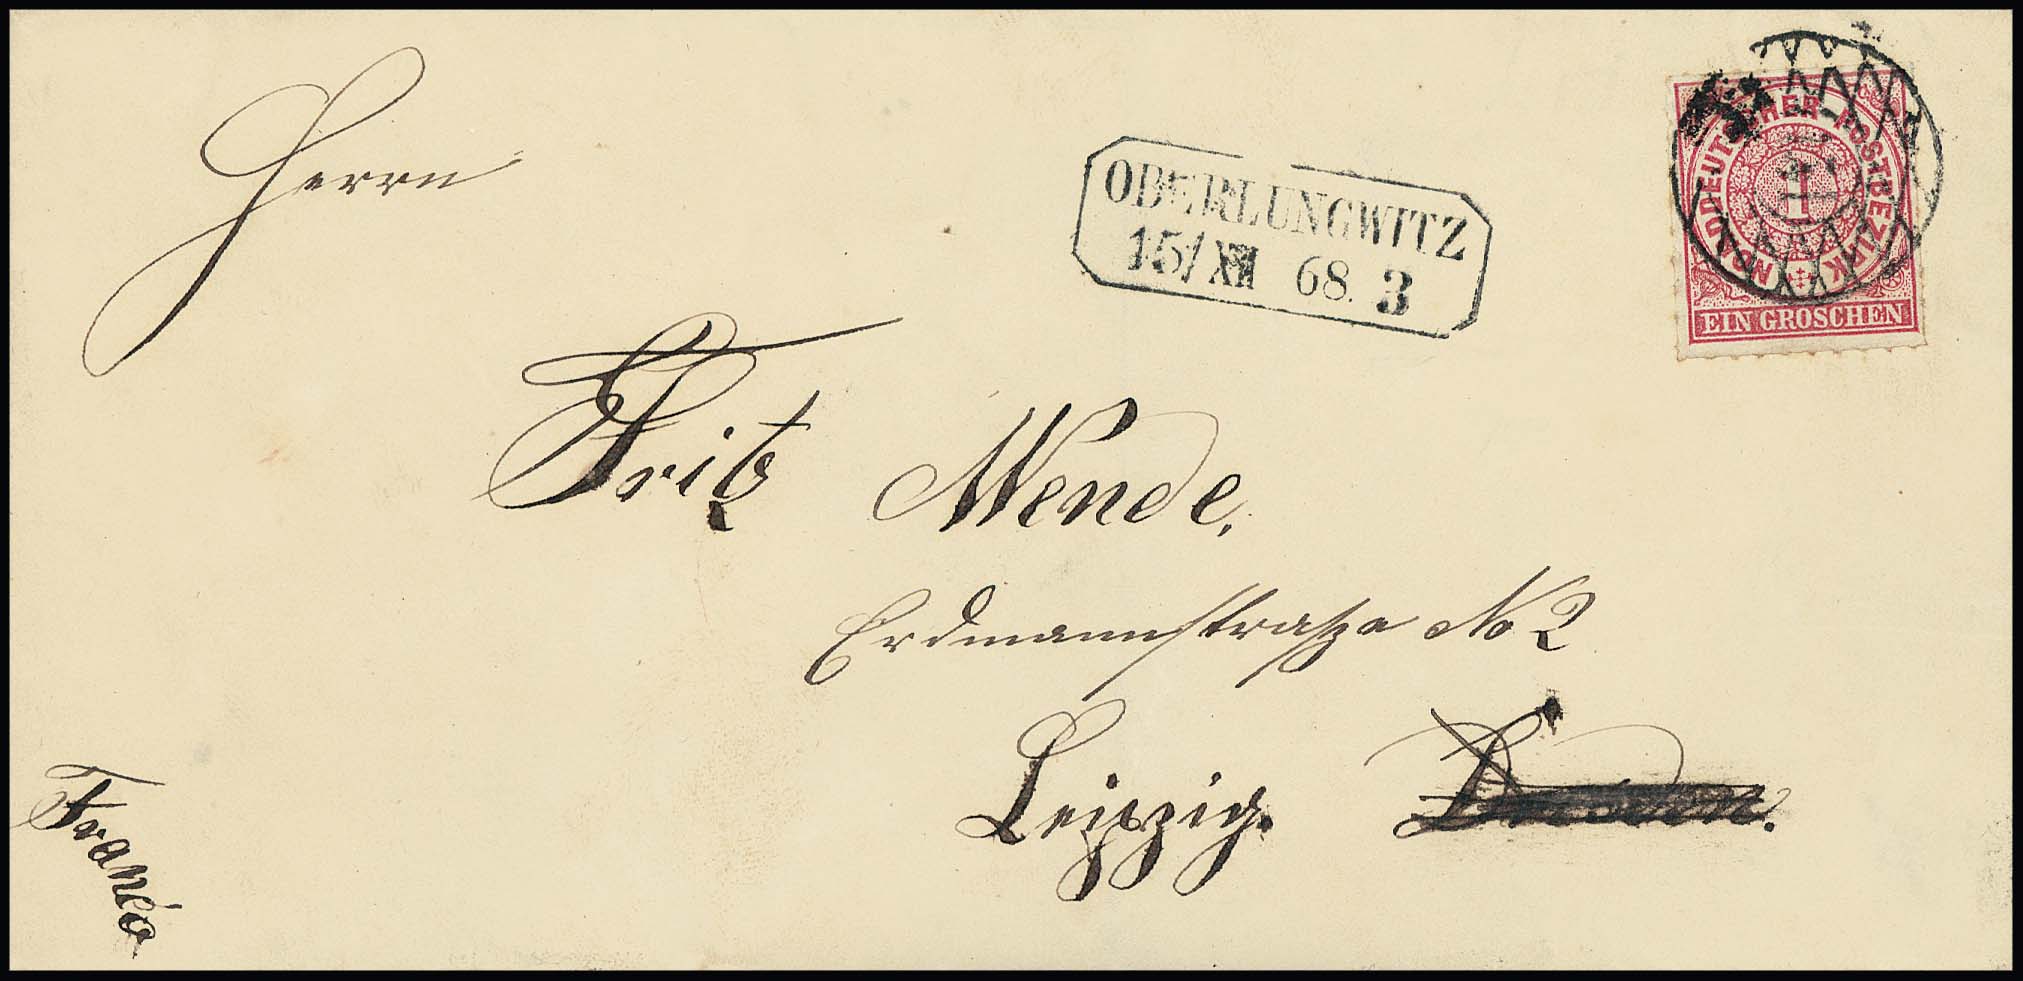 Herrn
OBERLUNGWITZ
15/XII 68. 3
NORDDEUTSCHER-POSTBEZIRK
1
EIN GROSCHEN
Fritz Wende,
Erdmannstraße No 2
Leipzig. Dresden.
Franco